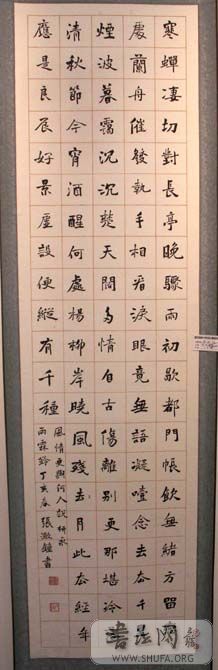 寒蟬凄切對長亭晚驟雨初歇都門帳飲無緒方留
處蘭舟催發執手相看淚眼竟無語凝噎念去去千
煙波暮靄沉沉楚天闊多情自古傷離別更那堪冷
清秋節今宵酒醒何處楊柳岸曉風殘去月此去經年
應是良辰好景虛設便縱有千種
風情更與何人說 柳永
雨霖鈴 丁亥春 張澂鐘書
WWW.SHUFA.ORG